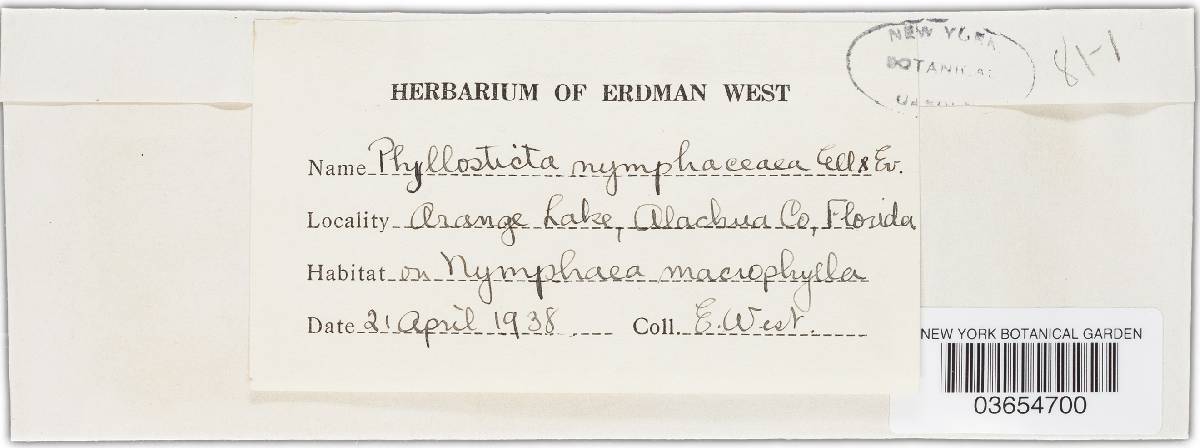 NEW YORK
BOTANICAL
81-1
HERBARIUM OF ERDMAN WEST
Name Phyllosticta nymphaceaea Ell & Ev.
Locality Orange Lake, Alachua Co, Florida
Habitat on Nymphaea macrophylla
Date 21 April 1938 Coll. E. West.
NEW YORK BOTANICAL GARDEN
03654700